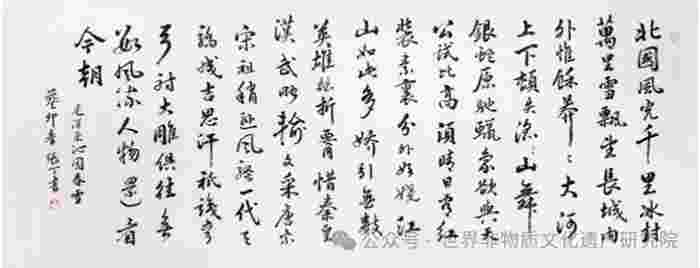 北国風光千里冰封
萬里雪飄望長城内
外惟餘莽々大河
上下頓失滔々山舞
銀蛇原馳蠟象欲與天
公試比高須晴日看紅
裝素裹分外妖嬈江
山如此多嬌引無數
英雄競折腰惜秦皇
漢武略輸文采唐宗
宋祖稍遜風騷一代天
驕成吉思汗祇識彎
弓射大雕俱往矣
數風流人物還看
今朝
毛澤東沁園春雪
癸卯春
公众号 · 世界非物质文化遗产研究院